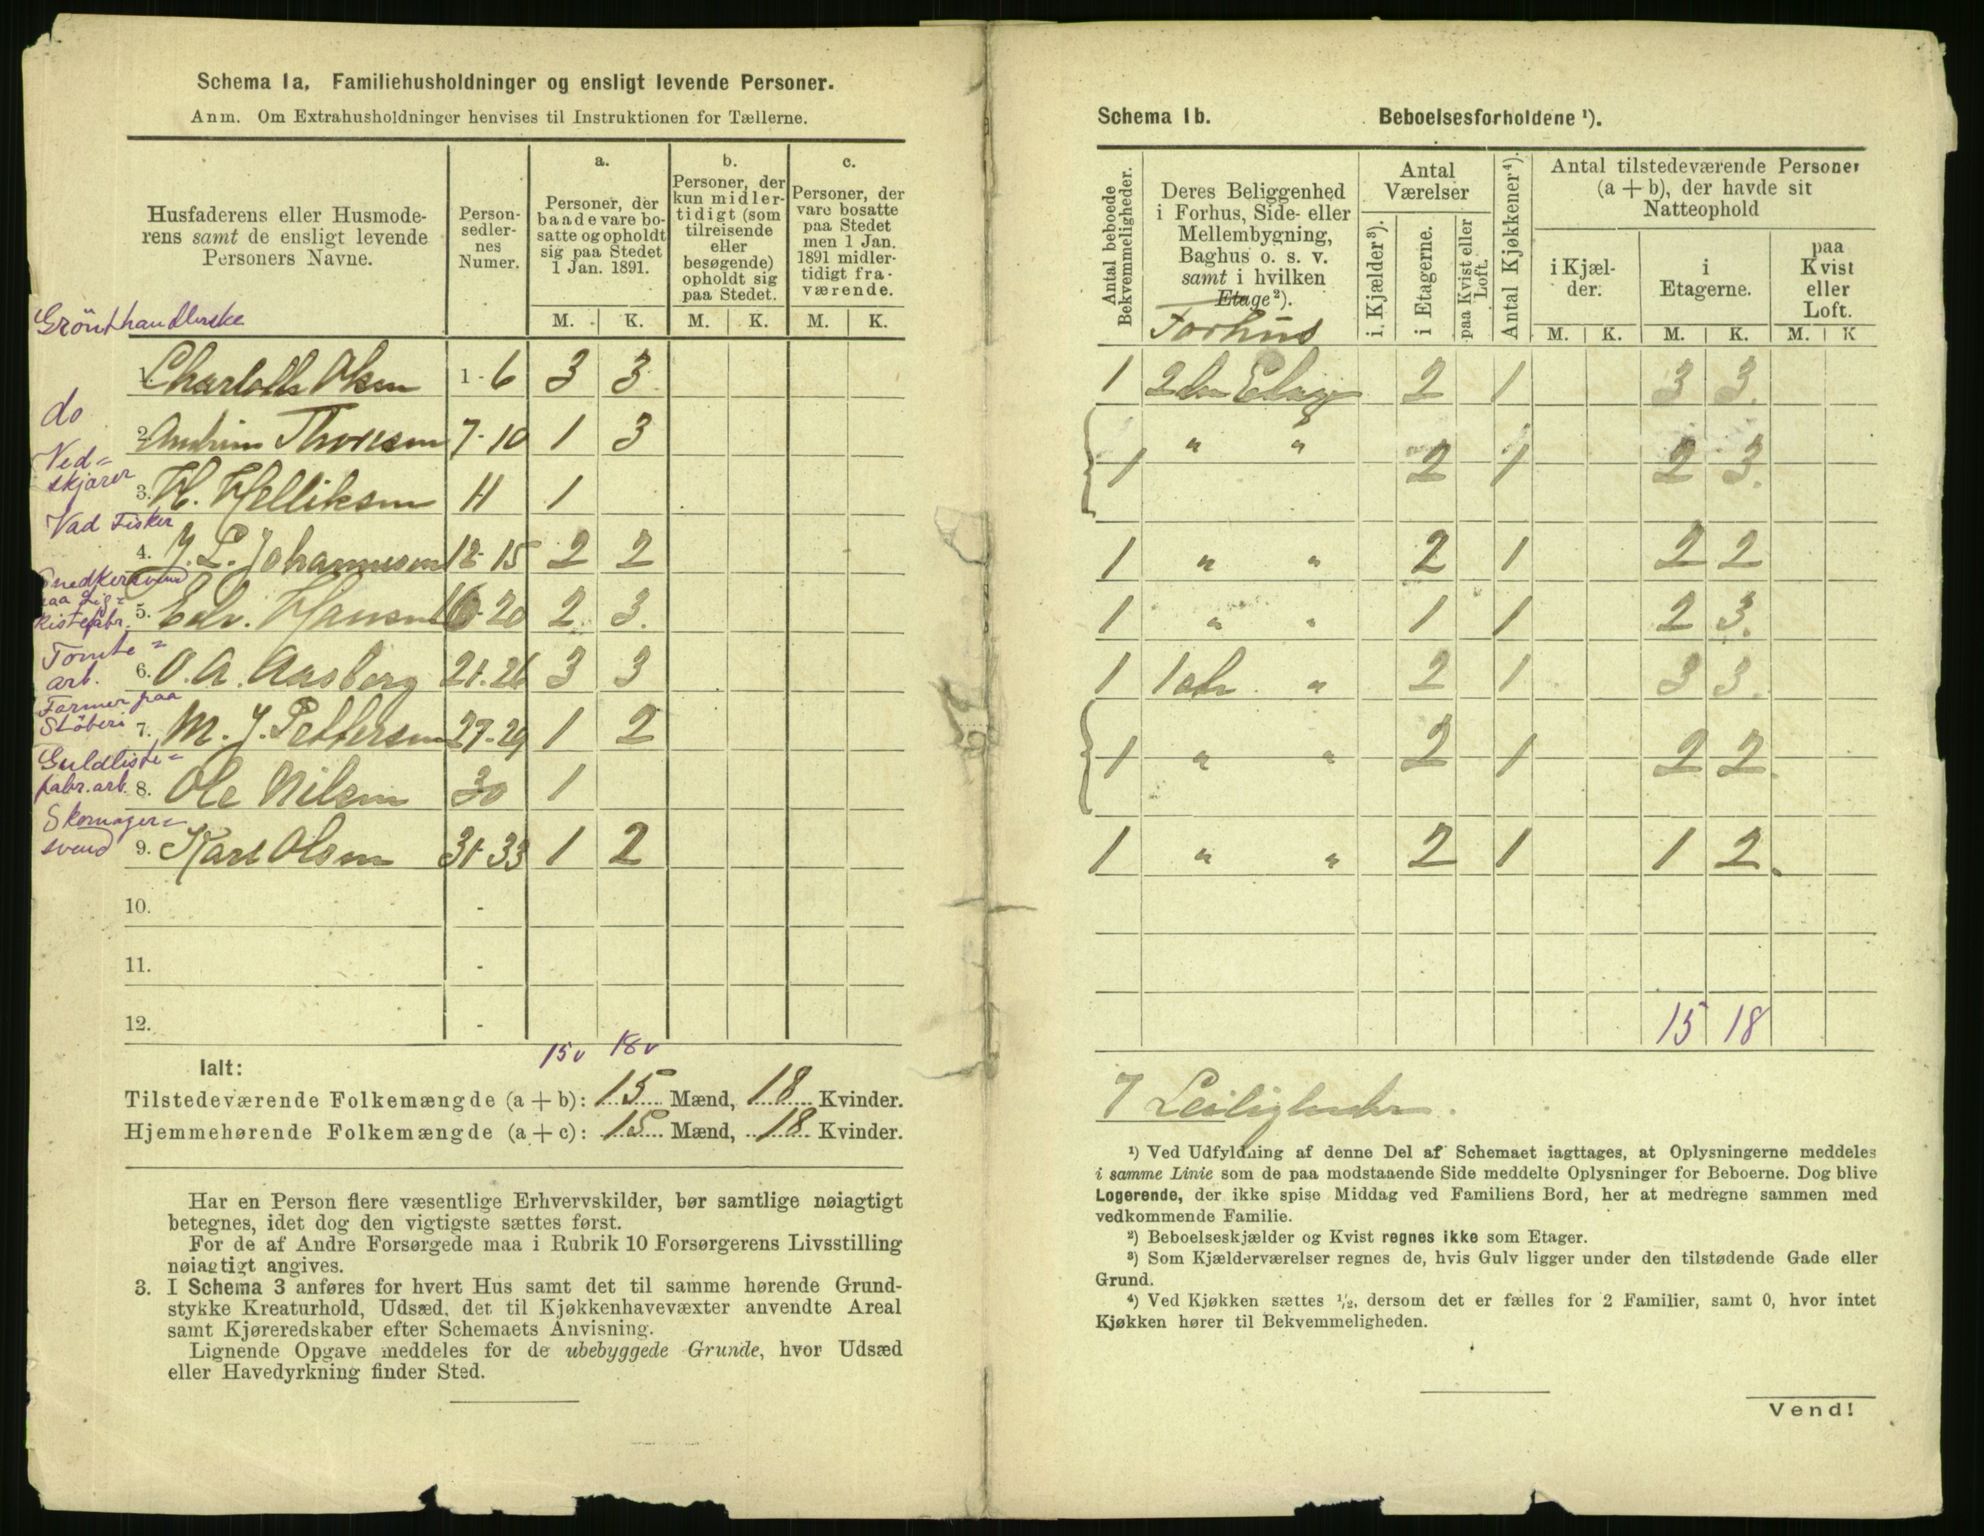 Schema 1a. Familiehusholdninger og ensligt levende Personer.
Anm. Om Extrahusholdninger henvises til Instruktionen for Tællerne.
Husfaderens eller Husmode-
rens samt de ensligt levende
Personers Navne.
Person-
sedler-
nes
Numer.
a.
Personer, der
baade vare bo-
satte og opholdt
sig paa Stedet
1 Jan. 1891.
b.
Personer, der
kun midler-
tidigt (som
tilreisende
eller
besøgende)
opholdt sig
paa Stedet.
c.
Personer, der
vare bosatte
paa Stedet
men 1 Jan.
1891 midler-
tidigt fra-
værende.
M. K. M. K. M. K.
Grönthandlerske
1. Charlotte Olsen 1-6 3 3
do
2. Andrine Thoresen 7-10 1 3
Ved=
skjærer
3. H. Helliksen 11 1
Vad Fisker
4. J. L. Johannesen 12-15 2 2
Snedkersvend
paa Lig=
kistefabr.
5. Edv. Hansen 16-20 2 3
Tomte=
arb.
6. O. A. Aasberg 21-26 3 3
Former paa
Stöberi
7. M. J. Pettersen 27-29 1 2
Guldliste=
fabr. arb.
8. Ole Nilsen 30 1
Skomager=
svend
9. Karl Olsen 31-33 1 2
10. -
11. -
12. -
15v 18v
Ialt:
Tilstedeværende Folkemængde (a + b): 15 Mænd, 18 Kvinder.
Hjemmehørende Folkemængde (a + c): 15 Mænd, 18 Kvinder.
Har en Person flere væsentlige Erhvervskilder, bør samtlige nøiagtigt
betegnes, idet dog den vigtigste sættes først.
For de af Andre Forsørgede maa i Rubrik 10 Forsørgerens Livsstilling
nøiagtigt angives.
3. I Schema 3 anføres for hvert Hus samt det til samme hørende Grund-
stykke Kreaturhold, Udsæd, det til Kjøkkenhavevæxter anvendte Areal
samt Kjøreredskaber efter Schemaets Anvisning.
Lignende Opgave meddeles for de ubebyggede Grunde, hvor Udsæd
eller Havedyrkning finder Sted.
Schema 1b. Beboelsesforholdene ¹).
Antal beboede
Bekvemmeligheder.
Deres Beliggenhed
i Forhus, Side- eller
Mellembygning,
Baghus o. s. v.
samt i hvilken
Etage ²).
Forhus
Antal
Værelser
i Kjælder ³).
i Etagerne.
paa Kvist eller
Loft.
Antal Kjøkkener ⁴).
Antal tilstedeværende Personer
(a + b), der havde sit
Natteophold
i Kjæl-
der.
i
Etagerne.
paa
Kvist
eller
Loft.
M. K. M. K. M. K
1 2den Etage 2 1 3 3
1 " " 2 1 2 3
1 " " 2 1 2 2
1 " " 1 1 2 3
1 1ste " 2 1 3 3
1 " " 2 1 2 2
1 " " 2 1 1 2
15 18
7 Leiligheder.
¹) Ved Udfyldning af denne Del af Schemaet iagttages, at Oplysningerne meddeles
i samme Linie som de paa modstaaende Side meddelte Oplysninger for Beboerne. Dog blive
Logerende, der ikke spise Middag ved Familiens Bord, her at medregne sammen med
vedkommende Familie.
²) Beboelseskjælder og Kvist regnes ikke som Etager.
³) Som Kjælderværelser regnes de, hvis Gulv ligger under den tilstødende Gade eller
Grund.
⁴) Ved Kjøkken sættes ½, dersom det er fælles for 2 Familier, samt 0, hvor intet
Kjøkken hører til Bekvemmeligheden.
Vend!